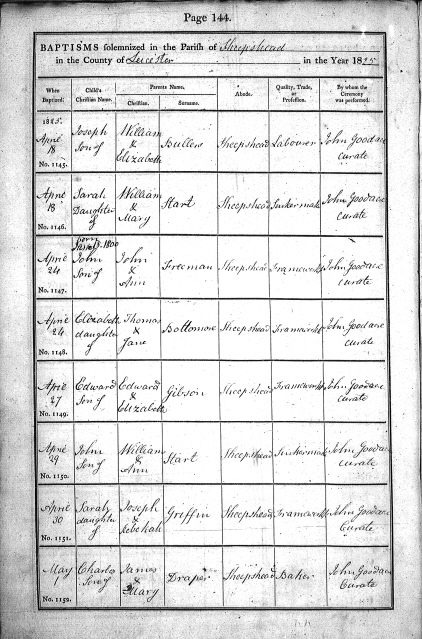 Page 144.
BAPTISMS solemnized in the Parish of Sheepshead
in the County of Leicester in the Year 1825
When Baptized. Child's Christian Name. Parents Name. Abode. Quality, Trade, or Profession. By whom the Ceremony was performed.
Christian. Surname.
1825.
April 18 No. 1145. Joseph Son of William & Elizabeth Butlers Sheepshead Labourer John Goodacre curate
April 18 No. 1146. Sarah Daughter of William & Mary Start Sheepshead John Goodacre curate
April 24 No. 1147. born 1800 John Son of John & Ann Freeman Sheepshead Framework John Goodacre curate
April 24 No. 1148. Elizabeth daughter of Thomas & Jane Bottomore Sheepshead Framework John Goodacre curate
April 27 No. 1149. Edward Son of Edward & Elizabeth Gibson Sheepshead Framework John Goodacre curate
April 29 No. 1150. John Son of William & Ann Start Sheepshead John Goodacre curate
April 30 No. 1151. Sarah daughter of Joseph & Rebekah Griffin Sheepshead Framework John Goodacre Curate
May 1 No. 1152. Charles Son of James & Mary Draper Sheepshead Baker John Goodacre Curate